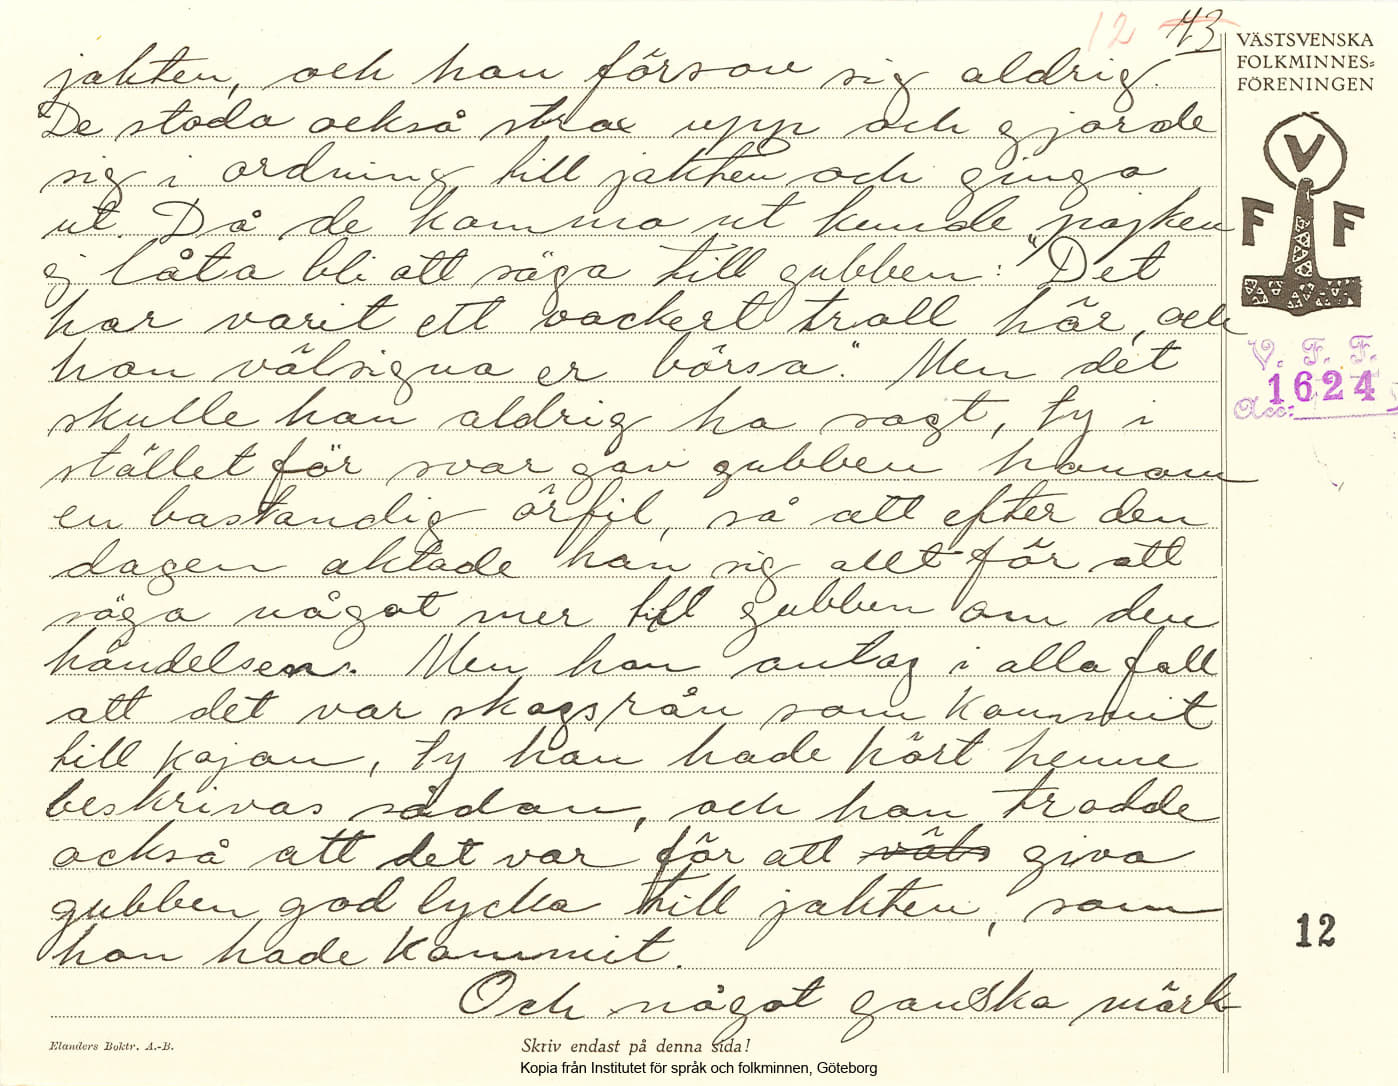 12 43
jakten, och han försov sig aldrig.
De stodo också strax upp och gjorde
sig i ordning till jakten och gingo
ut. Då de kommo ut kunde pojken
ej låta bli att säga till gubben: "Det
har varit ett vackert troll här, och
hon välsigna er börsa." Men det
skulle han aldrig ha sagt, ty i
stället för svar gav gubben honom
en bastandig örfil, så att efter den
dagen aktade han sig allt för att
säga något mer till gubben om den
händelsen. Men han antog i alla fall
att det var skogsrån som kommit
till kojan, ty han hade hört henne
beskrivas sådan, och han trodde
också att det var för att väls giva
gubben god lycka till jakten, som
hon hade kommit.
Och något ganska märk-
VÄSTSVENSKA
FOLKMINNES=
FÖRENINGEN
V
F F
V. F. F.
1624
Acc:
12
Elanders Boktr. A.-B.
Skriv endast på denna sida!
Kopia från Institutet för språk och folkminnen, Göteborg